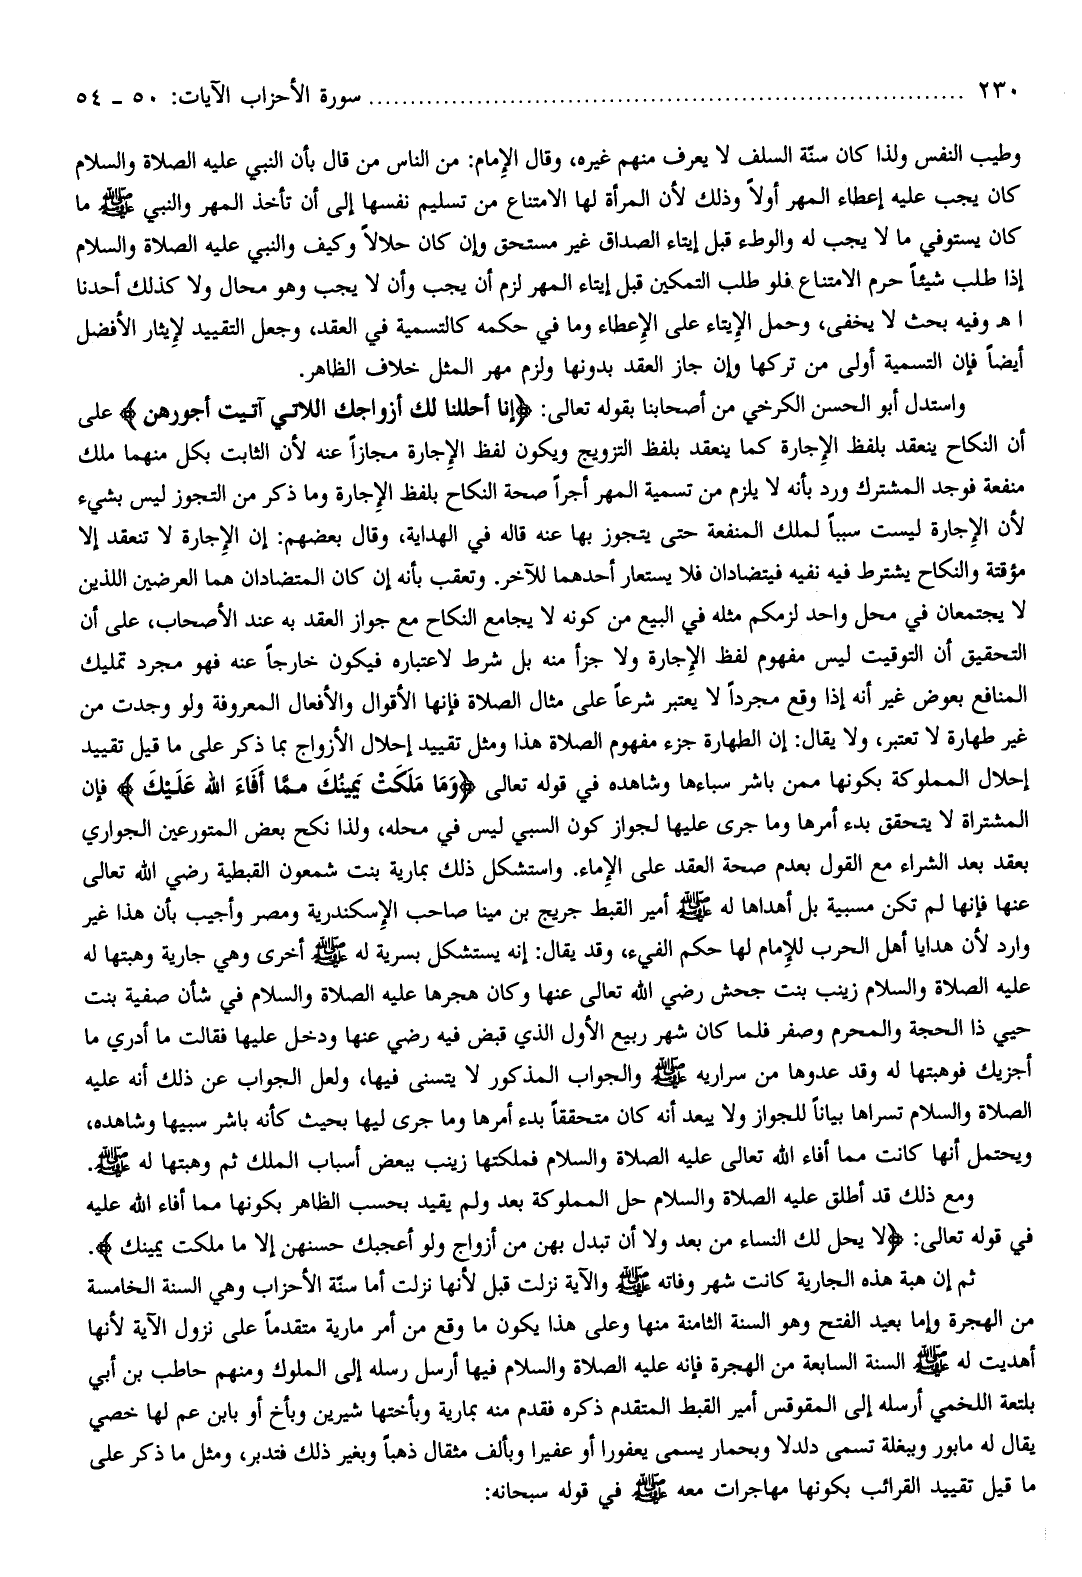 ٢٣٠ ........................................................................ سورة الأحزاب الآيات: ٥٠ - ٥٤
وطيب النفس ولذا كان سنّة السلف لا يعرف منهم غيره، وقال الإمام: من الناس من قال بأن النبي عليه الصلاة والسلام
كان يجب عليه إعطاء المهر أولاً وذلك لأن المرأة لها الامتناع من تسليم نفسها إلى أن تأخذ المهر والنبي ﷺ ما
كان يستوفي ما لا يجب له والوطء قبل إيتاء الصداق غير مستحق وإن كان حلالاً وكيف والنبي عليه الصلاة والسلام
إذا طلب شيئاً حرم الامتناع فلو طلب التمكين قبل إيتاء المهر لزم أن يجب وأن لا يجب وهو محال ولا كذلك أحدنا
ا هـ وفيه بحث لا يخفى، وحمل الإيتاء على الإعطاء وما في حكمه كالتسمية في العقد، وجعل التقييد لإيثار الأفضل
أيضاً فإن التسمية أولى من تركها وإن جاز العقد بدونها ولزم مهر المثل خلاف الظاهر.
واستدل أبو الحسن الكرخي من أصحابنا بقوله تعالى: ﴿إنا أحللنا لك أزواجك اللاتي آتيت أجورهن﴾ على
أن النكاح ينعقد بلفظ الإجارة كما ينعقد بلفظ التزويج ويكون لفظ الإجارة مجازاً عنه لأن الثابت بكل منهما ملك
منفعة فوجد المشترك ورد بأنه لا يلزم من تسمية المهر أجراً صحة النكاح بلفظ الإجارة وما ذكر من التجوز ليس بشيء
لأن الإجارة ليست سبباً لملك المنفعة حتى يتجوز بها عنه قاله في الهداية، وقال بعضهم: إن الإجارة لا تنعقد إلا
مؤقتة والنكاح يشترط فيه نفيه فيتضادان فلا يستعار أحدهما للآخر. وتعقب بأنه إن كان المتضادان هما العرضين اللذين
لا يجتمعان في محل واحد لزمكم مثله في البيع من كونه لا يجامع النكاح مع جواز العقد به عند الأصحاب، على أن
التحقيق أن التوقيت ليس مفهوم لفظ الإجارة ولا جزأ منه بل شرط لاعتباره فيكون خارجاً عنه فهو مجرد تمليك
المنافع بعوض غير أنه إذا وقع مجرداً لا يعتبر شرعاً على مثال الصلاة فإنها الأقوال والأفعال المعروفة ولو وجدت من
غير طهارة لا تعتبر، ولا يقال: إن الطهارة جزء مفهوم الصلاة هذا ومثل تقييد إحلال الأزواج بما ذكر على ما قيل تقييد
إحلال المملوكة بكونها ممن باشر سباءها وشاهده في قوله تعالى ﴿وَمَا مَلَكَتْ يَمِينُكَ مِمَّا أَفَاءَ الله عَلَيْكَ﴾ فإن
المشتراة لا يتحقق بدء أمرها وما جرى عليها لجواز كون السبي ليس في محله، ولذا نكح بعض المتورعين الجواري
بعقد بعد الشراء مع القول بعدم صحة العقد على الإماء. واستشكل ذلك بمارية بنت شمعون القبطية رضي الله تعالى
عنها فإنها لم تكن مسبية بل أهداها له ﷺ أمير القبط جريج بن مينا صاحب الإسكندرية ومصر وأجيب بأن هذا غير
وارد لأن هدايا أهل الحرب للإمام لها حكم الفيء، وقد يقال: إنه يستشكل بسرية له ﷺ أخرى وهي جارية وهبتها له
عليه الصلاة والسلام زينب بنت جحش رضي الله تعالى عنها وكان هجرها عليه الصلاة والسلام في شأن صفية بنت
حيي ذا الحجة والمحرم وصفر فلما كان شهر ربيع الأول الذي قبض فيه رضي عنها ودخل عليها فقالت ما أدري ما
أجزيك فوهبتها له وقد عدوها من سراريه ﷺ والجواب المذكور لا يتسنى فيها، ولعل الجواب عن ذلك أنه عليه
الصلاة والسلام تسراها بياناً للجواز ولا يبعد أنه كان متحققاً بدء أمرها وما جرى ليها بحيث كأنه باشر سبيها وشاهده،
ويحتمل أنها كانت مما أفاء الله تعالى عليه الصلاة والسلام فملكتها زينب ببعض أسباب الملك ثم وهبتها له ﷺ.
ومع ذلك قد أطلق عليه الصلاة والسلام حل المملوكة بعد ولم يقيد بحسب الظاهر بكونها مما أفاء الله عليه
في قوله تعالى: ﴿لا يحل لك النساء من بعد ولا أن تبدل بهن من أزواج ولو أعجبك حسنهن إلا ما ملكت يمينك﴾.
ثم إن هبة هذه الجارية كانت شهر وفاته ﷺ والآية نزلت قبل لأنها نزلت أما سنّة الأحزاب وهي السنة الخامسة
من الهجرة وإما بعيد الفتح وهو السنة الثامنة منها وعلى هذا يكون ما وقع من أمر مارية متقدماً على نزول الآية لأنها
أهديت له ﷺ السنة السابعة من الهجرة فإنه عليه الصلاة والسلام فيها أرسل رسله إلى الملوك ومنهم حاطب بن أبي
بلتعة اللخمي أرسله إلى المقوقس أمير القبط المتقدم ذكره فقدم منه بمارية وبأختها شيرين وبأخ أو بابن عم لها خصي
يقال له مابور وببغلة تسمى دلدلا وبحمار يسمى يعفورا أو عفيرا وبألف مثقال ذهباً وبغير ذلك فتدبر، ومثل ما ذكر على
ما قيل تقييد القرائب بكونها مهاجرات معه ﷺ في قوله سبحانه: